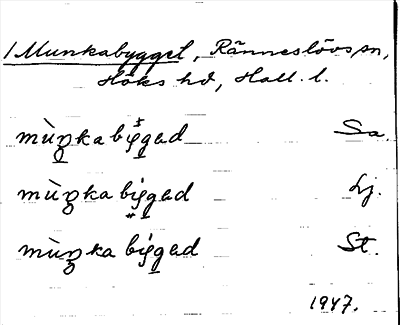 /Munkabygget, Ränneslövs sn,
Höks hd, Hall. l.
mùŋka bygəd Sa.
mùŋka bygəd Lj.
mùŋka bygəd St.
1947.